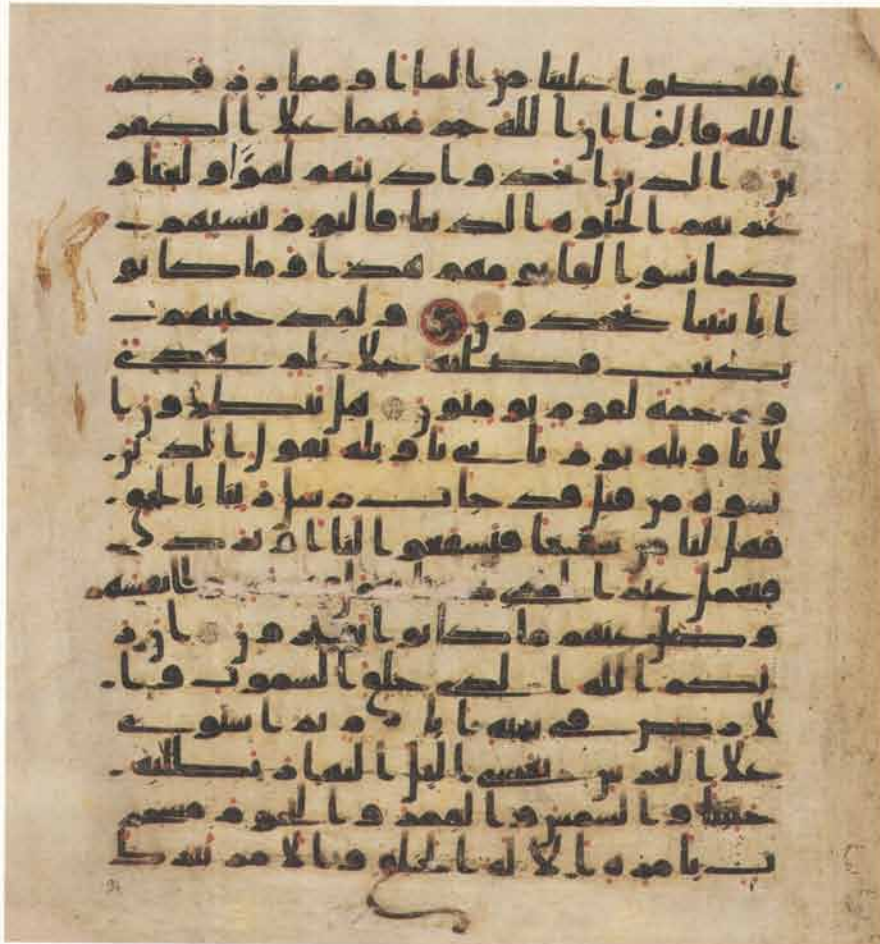 افيضوا علينا من الما او مما رزقكم
الله قالوا ان الله حرمهما على الكفر
ين الذين اتخذوا دينهم لهوا ولعبا و
غرتهم الحيوة الدنيا فاليوم ننسيهم
كما نسوا لقا يومهم هذا وما كانو
ا بايتنا يجحدون ولقد جينهم
بكتب فصلنه على علم هدى
ورحمة لقوم يومنون هل ينظرون ا
لا تاويله يوم ياتي تاويله يقول الذين
نسوه من قبل قد جات رسل ربنا بالحق
فهل لنا من شفعا فيشفعوا لنا او نرد
فنعمل غير الذي انفسهم
وضل عنهم ما كانوا يفترون ان ر
بكم الله الذي خلق السموت وا
لارض في ستة ايام ثم استوى
على العرش يغشي اليل النهار يطلبه
حثيثا والشمس والقمر والنجوم مسخر
ت بامره الا له الخلق والامر تبرك